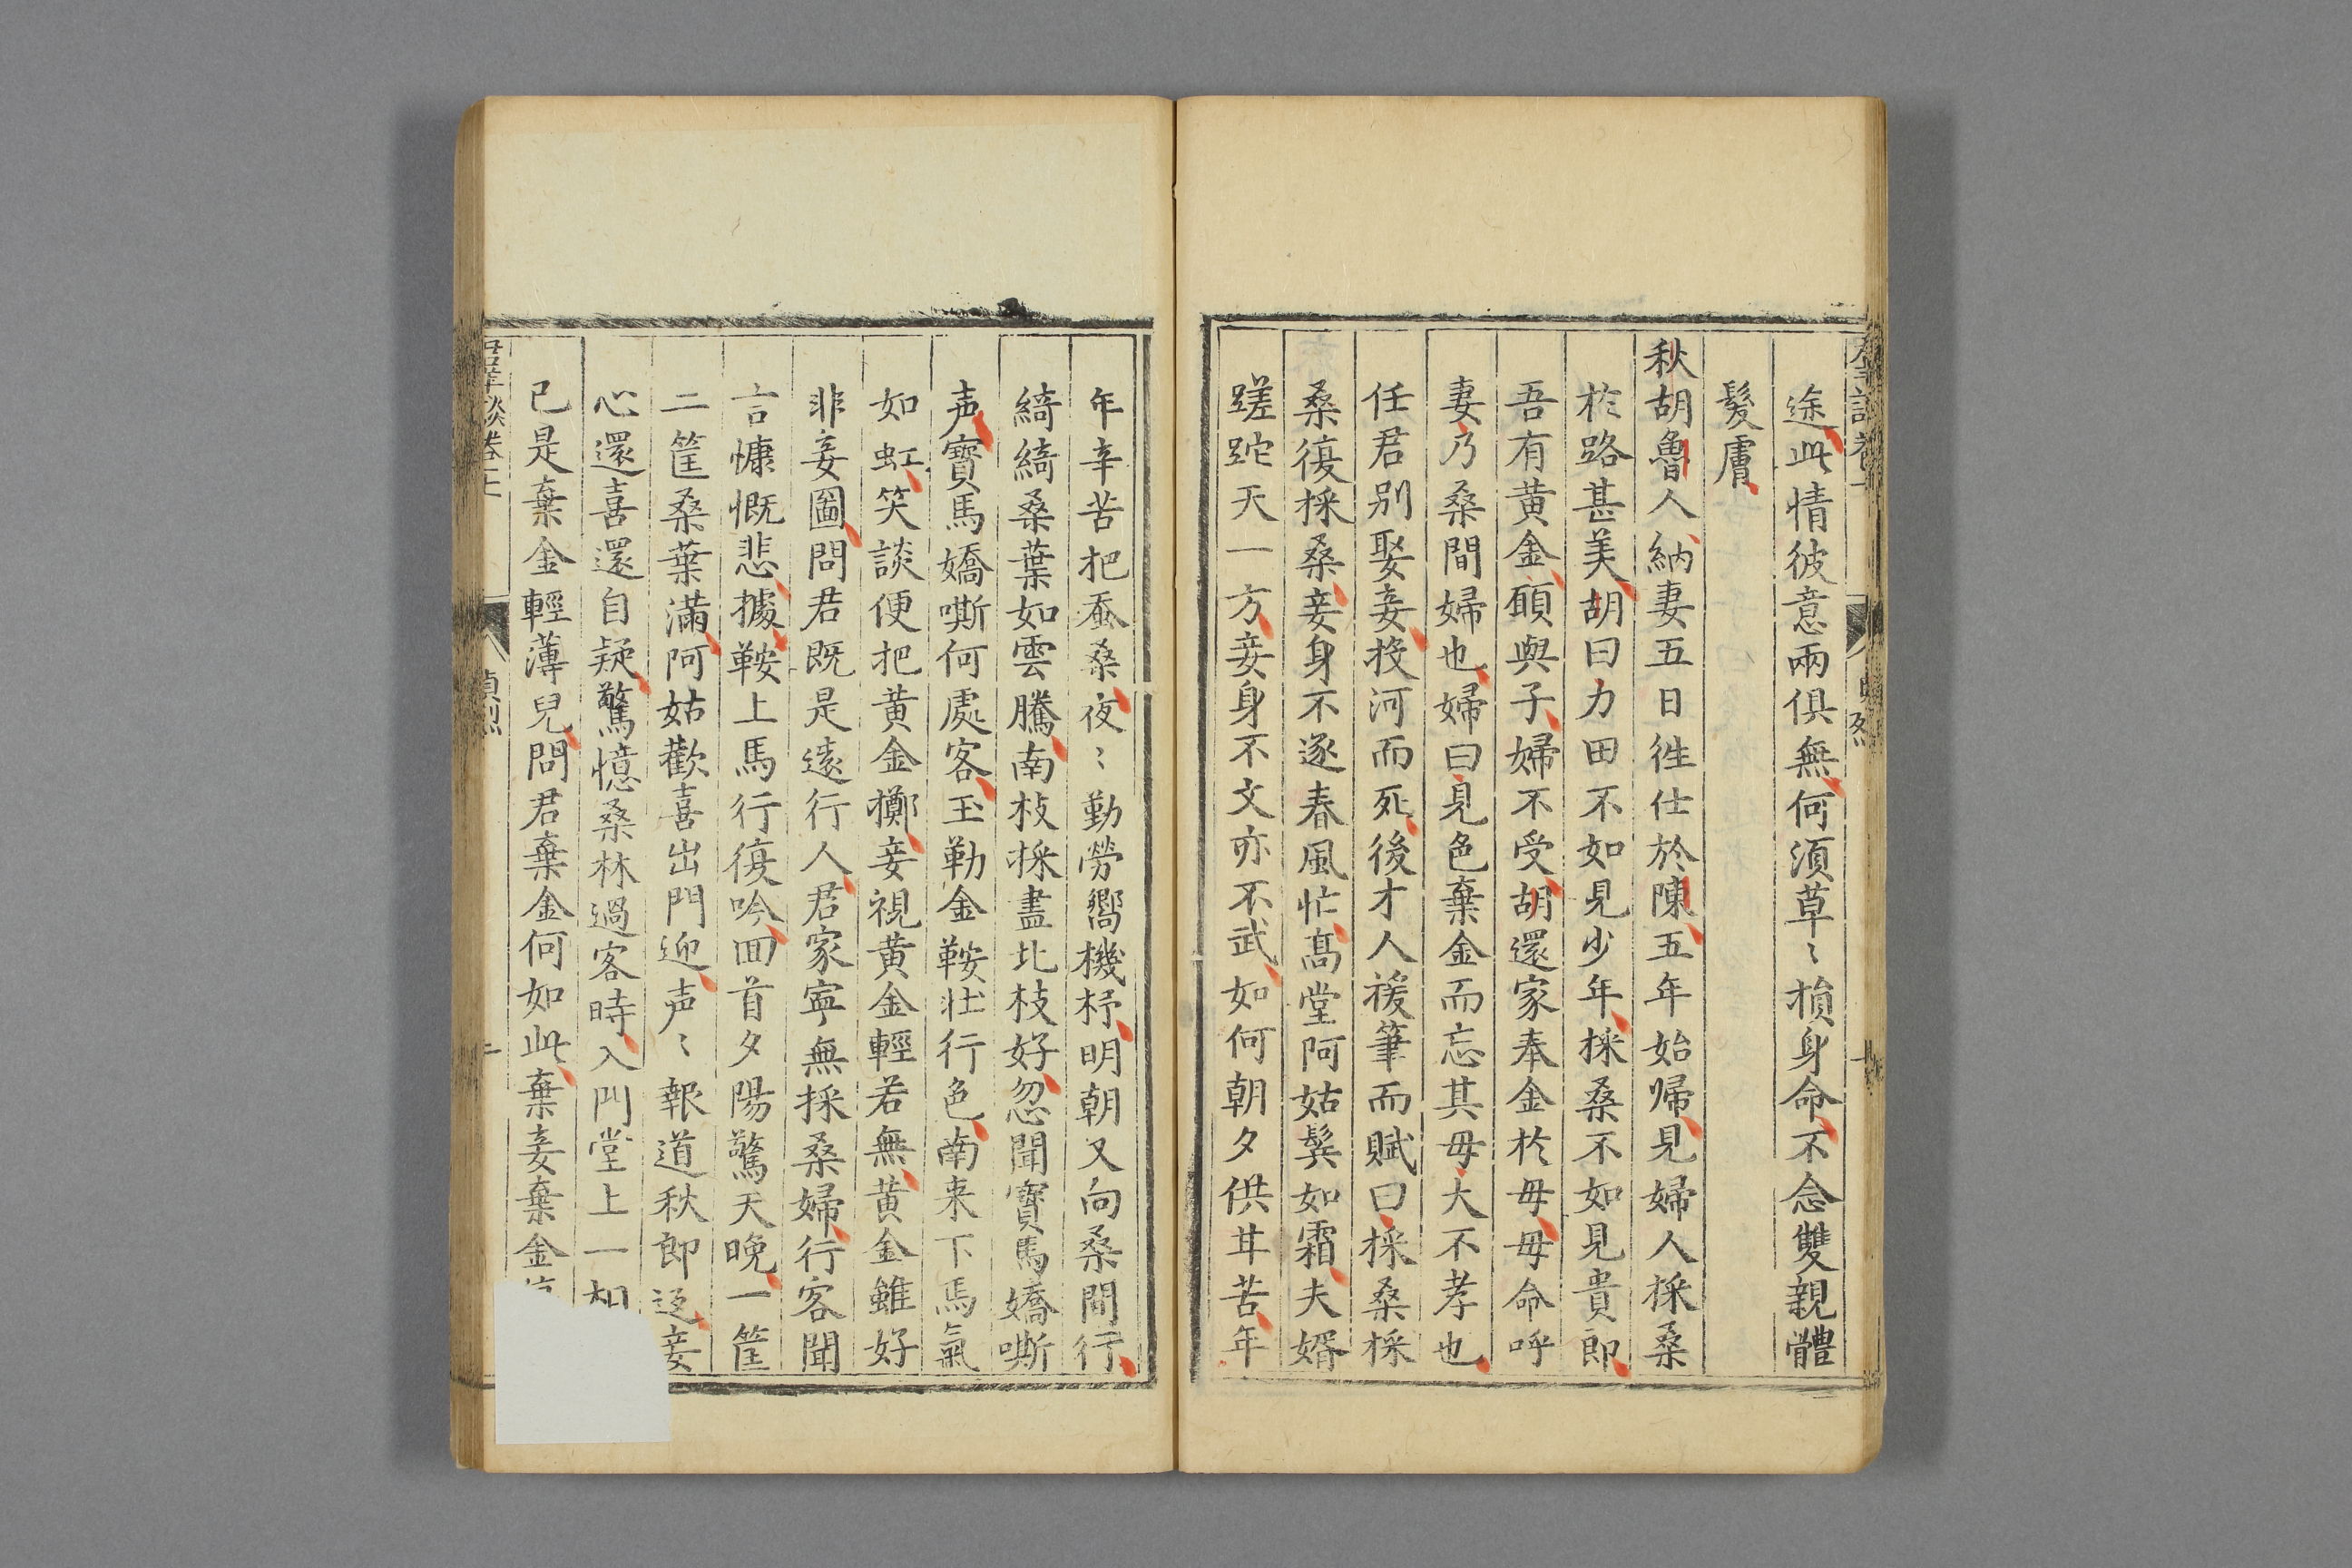 途此情彼意兩俱無何須草〻損身命不念雙親體
髮膚
秋胡魯人納妻五日徃仕於陳五年始㱕見婦人採桑
於路甚美胡曰力田不如見少年採桑不如見貴郎
吾有黄金願與子婦不受胡還家奉金於母母命呼
妻乃桑間婦也婦曰見色棄金而忘其母大不孝也
任君别娶妾投河而死後才人援筆而賦曰採桑採
桑復採桑妾身不逐春風忙髙堂阿姑鬓如霜夫婿
蹉跎天一方妾身不文亦不武如何朝夕供甘苦年
年辛苦把蚕桑夜〻勤勞嚮機杼明朝又向桑間行
綺綺桑葉如雲騰南枝採盡北枝好忽聞寶馬嬌嘶
声寶馬嬌嘶何處客玉勒金鞍壮行色南来下馬氣
如虹笑談便把黄金擲妾視黄金輕若無黄金雖好
非妾圖問君既是逺行人君家寧無採桑婦行客聞
言慷慨悲據鞍上馬行復吟囬首夕陽驚天晚一筐
二筐桑葉滿阿姑歡喜出門迎声〻報道秋郎返妾
心還喜還自疑驚憶桑林過客時入門堂上一相
已是棄金輕薄兒問君棄金何如此棄妾棄金